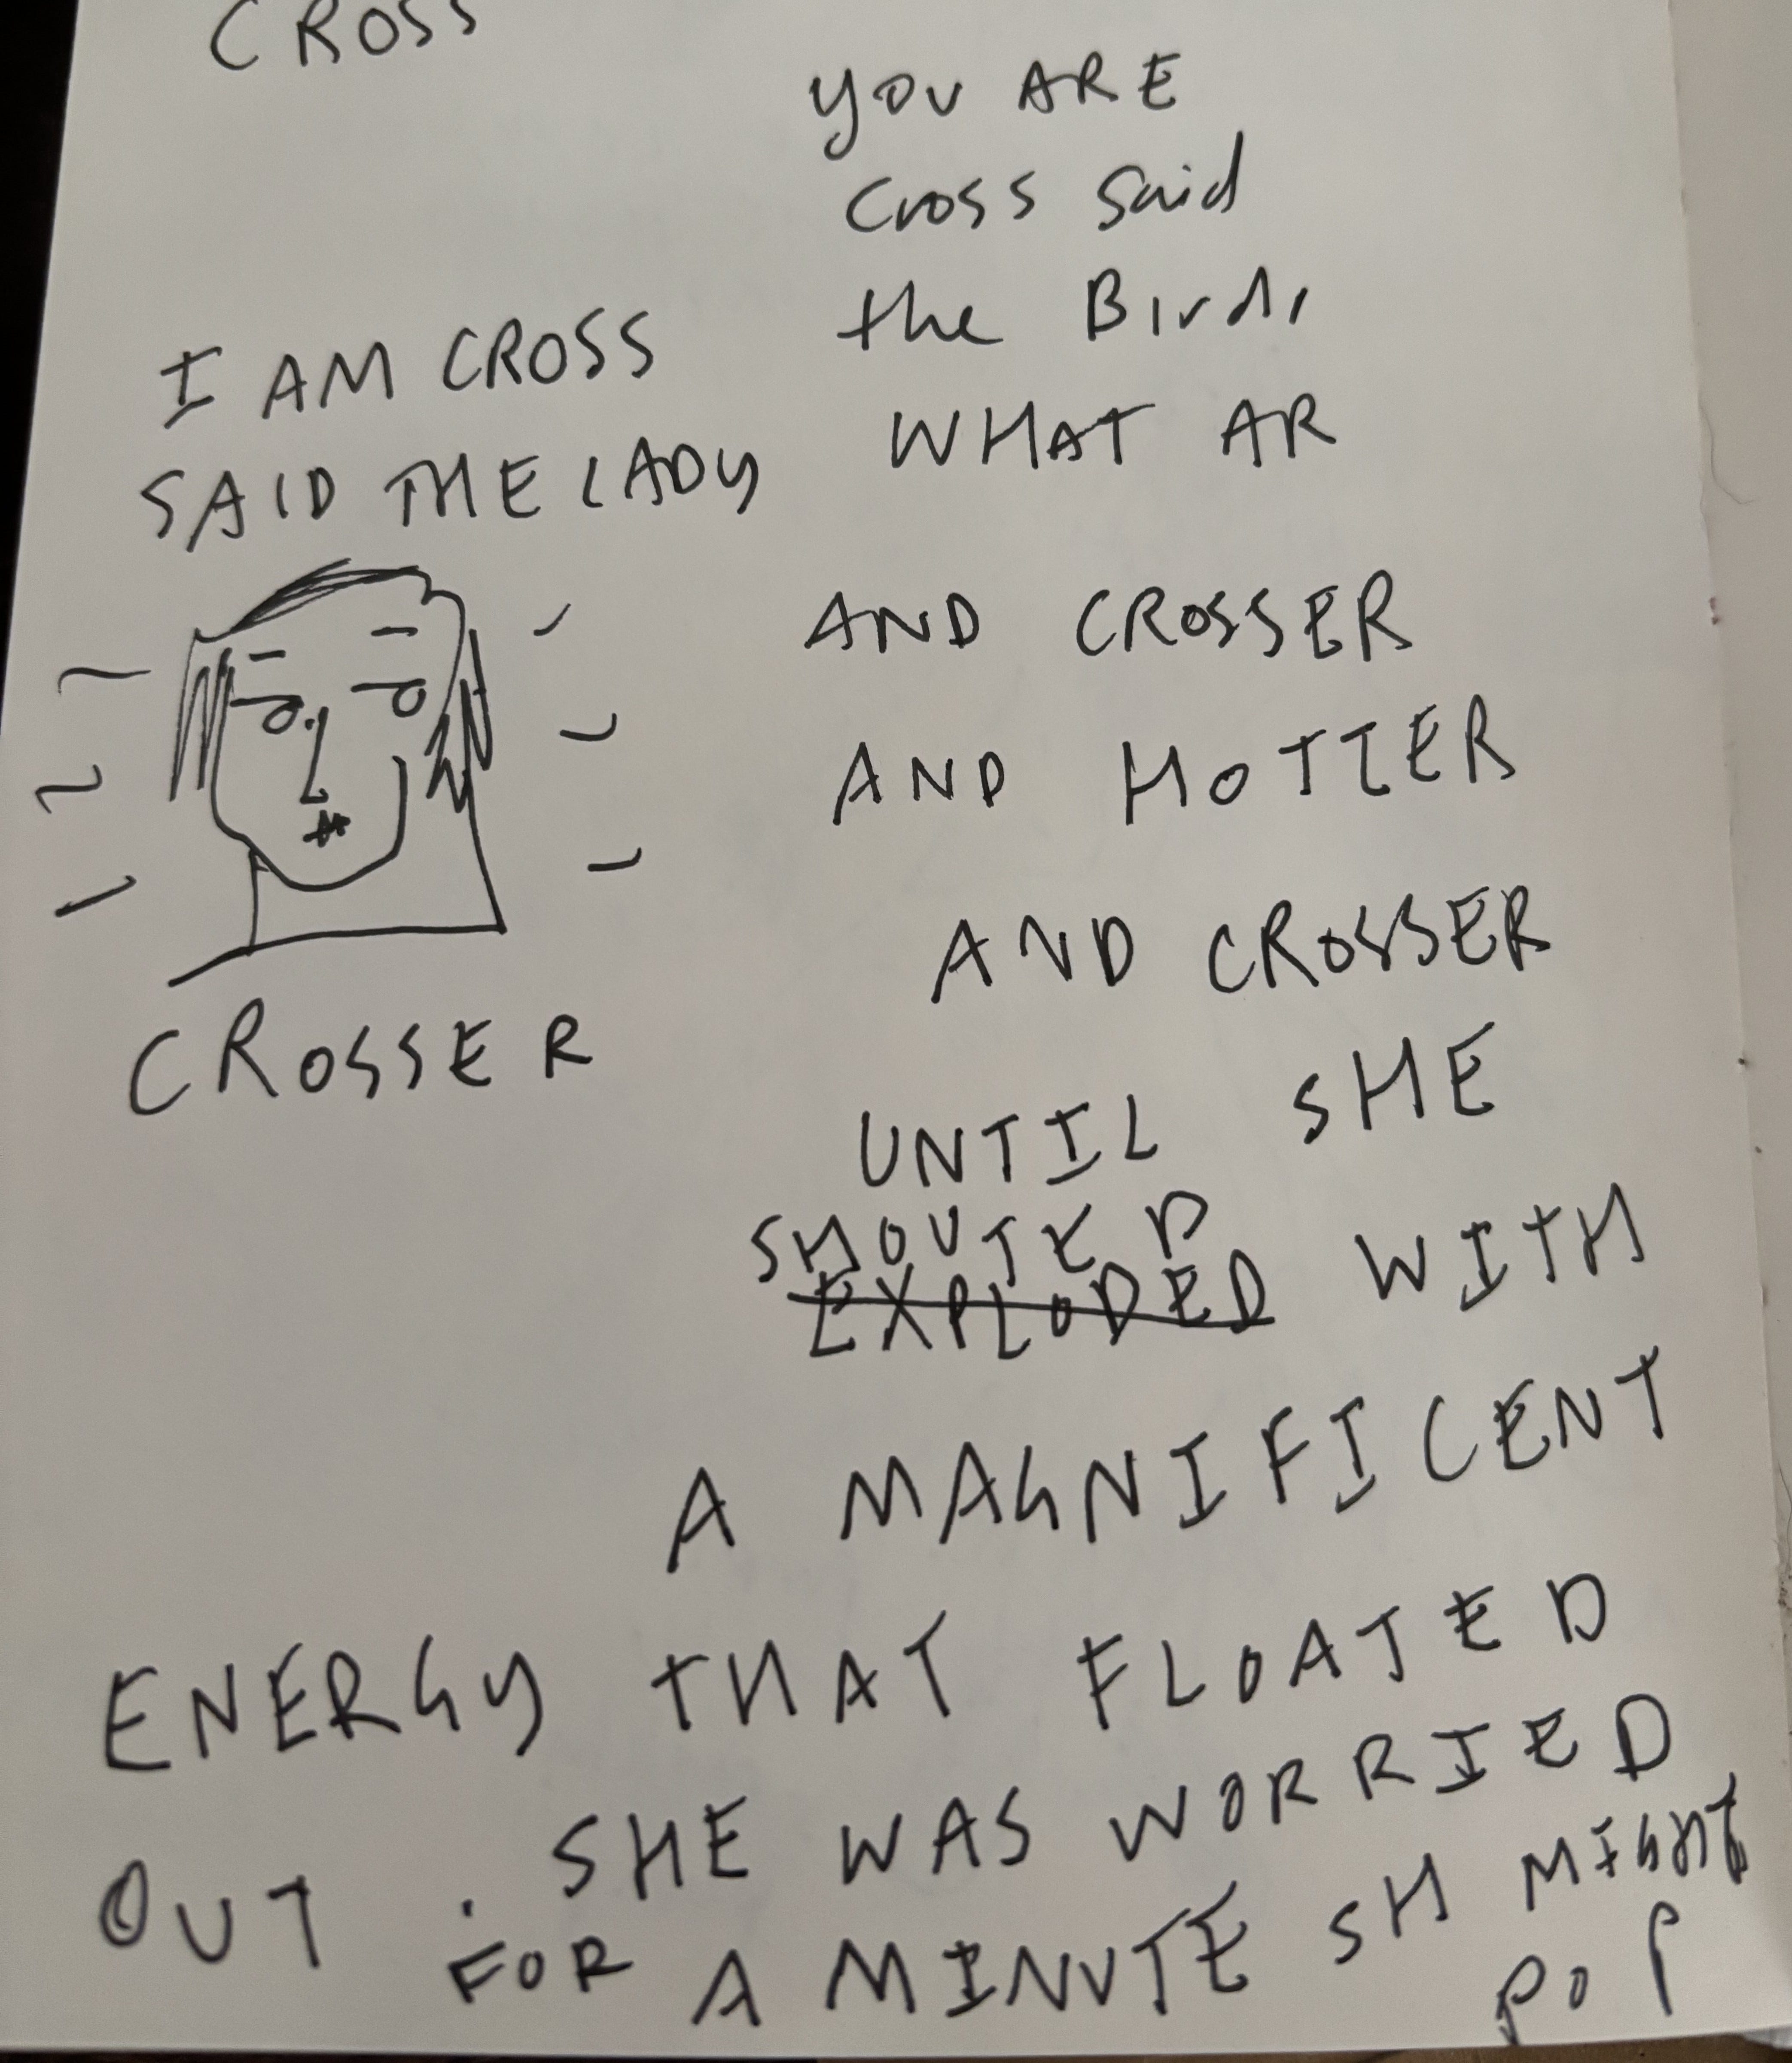 CROSS
I AM CROSS
SAID THE LADY
CROSSER
YOU ARE
Cross said
the Bird,
WHAT AR
AND CROSSER
AND HOTTER
AND CROSSER
UNTIL SHE
SHOUTED
EXPLODED WITH
A MAGNIFICENT
ENERGY THAT FLOATED
OUT. SHE WAS WORRIED
FOR A MINUTE SH MIGHT
POP